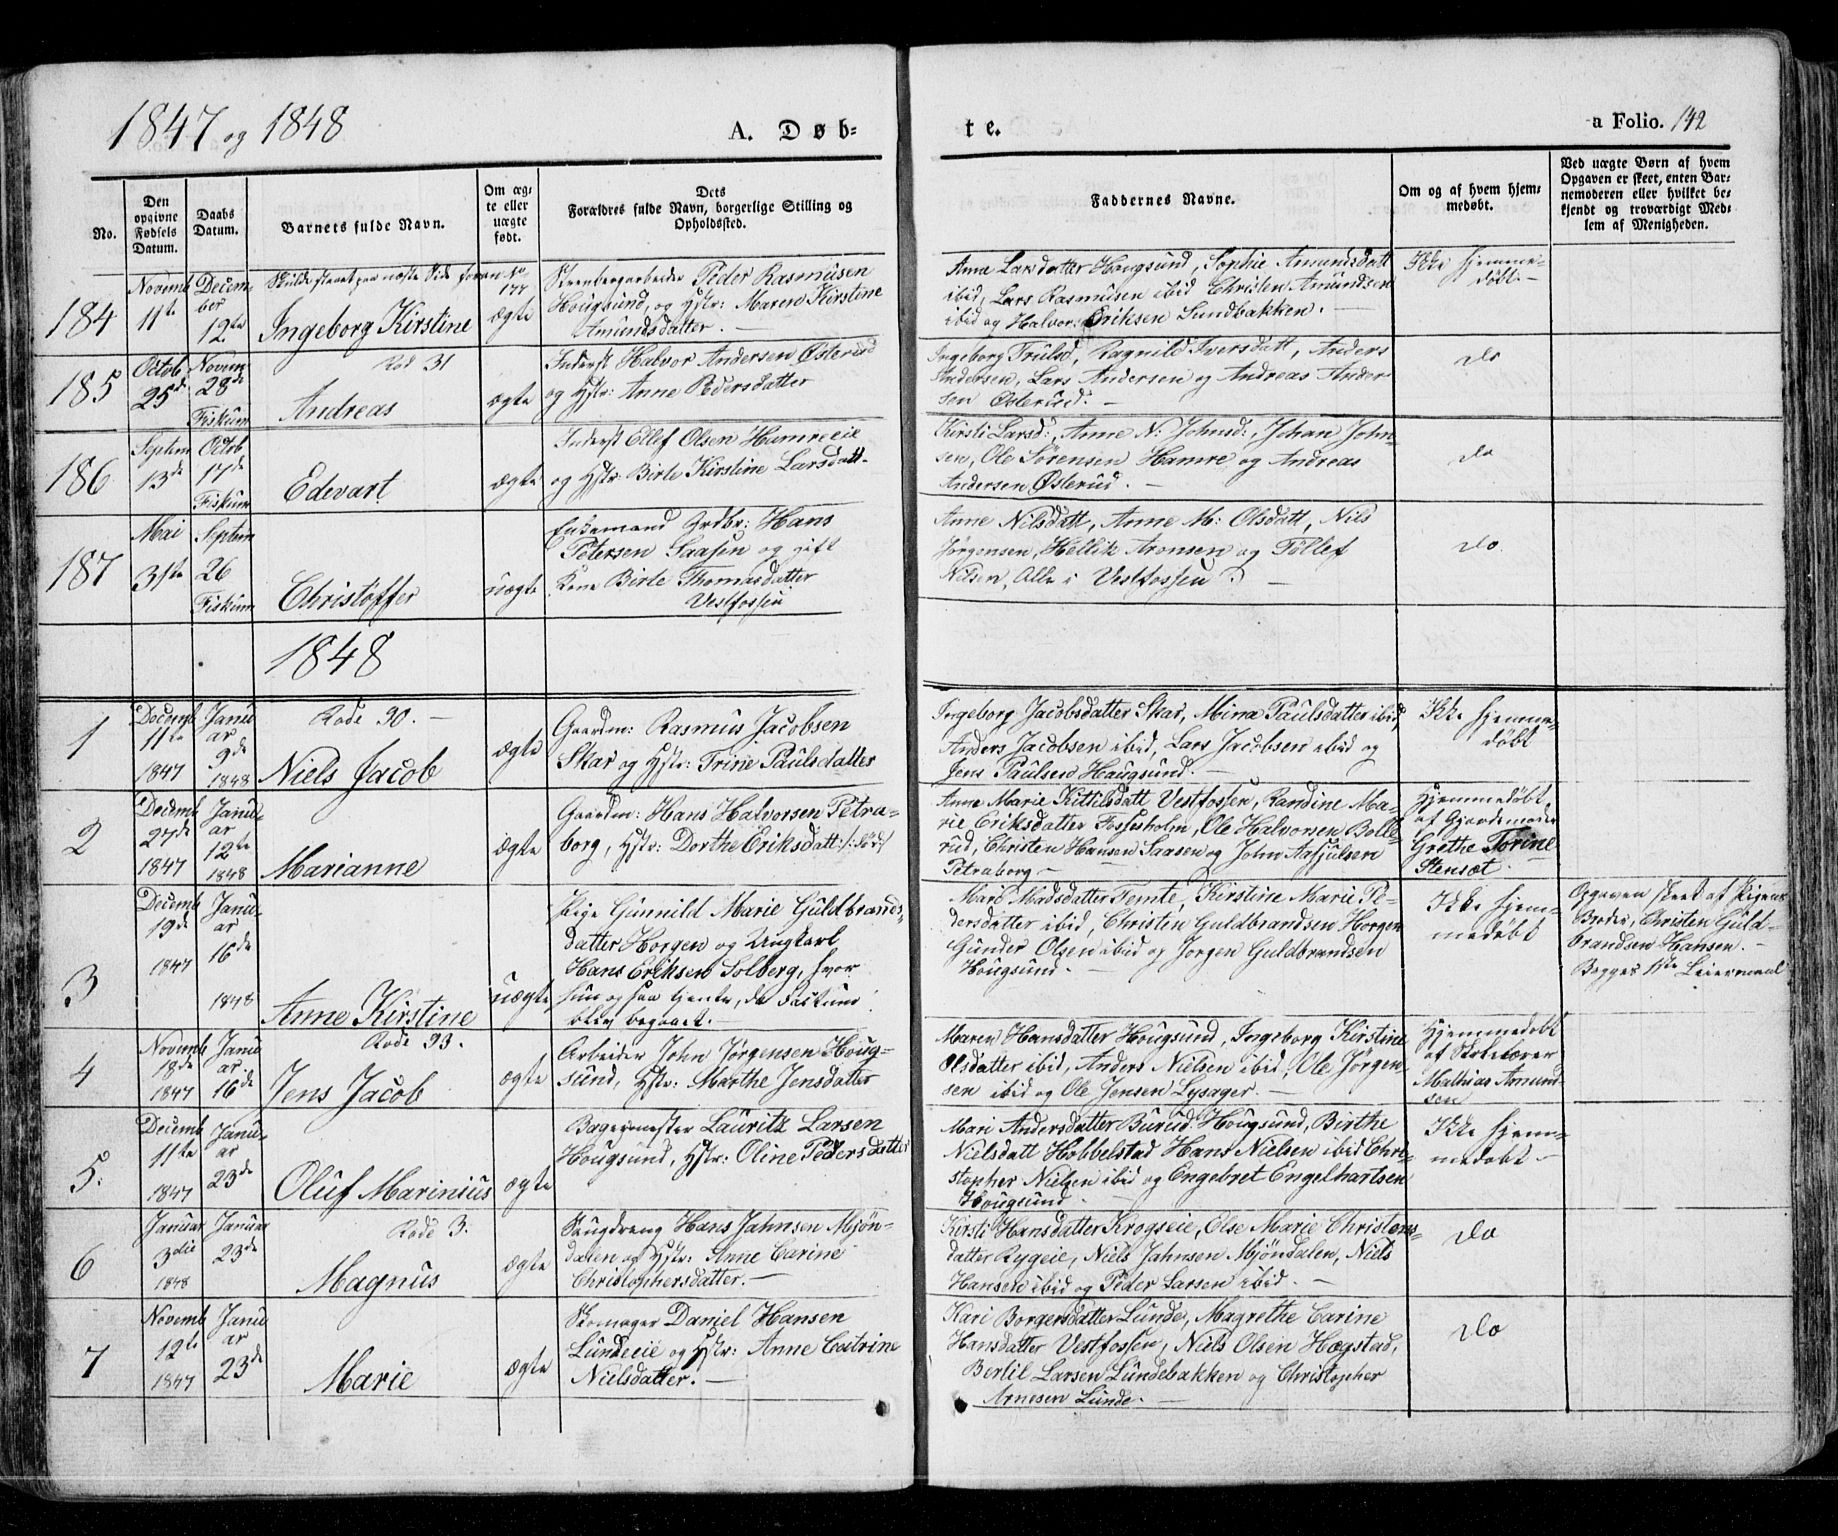 1847 og 1848
A. Døb-
te.
a Folio. 142
No.
Den opgivne Fødsels Datum.
Daabs Datum.
Barnets fulde Navn.
Om ægte eller uægte født.
Dets Forældres fulde Navn, borgerlige Stilling og Opholdssted.
Faddernes Navne.
Om og af hvem hjemmedøbt.
Ved uægte Børn af hvem Opgaven er skeet, enten Barnemoderen eller hvilket bekjendt og troværdigt Medlem af Menigheden.
184
Novemb
11te
December
12te
Skulde staaet paa næste Side foran No
Ingeborg Kirstine
ægte
Peder Rasmusen
Hougsund, og Hstr: Maren Kirstine
Amundsdatter. –
Anne Larsdatter Hougsund, Sophie Amundsdatt
ibid, Lars Rasmusen ibid Christen Amundsen
ibid og Halvor Eriksen Lundbakken. –
Ikke hjemme-
døbt. –
185
Octob
25de
Novem
28de
Fiskum
Rod 31
Andreas
ægte
Inderst Halvor Andersen Østerud
og Hstr: Anne Pedersdatter
Ingeborg Trulsd, Ragnild Iversdatt, Anders
Andersen, Lars Andersen og Andreas Ander
sen Østerud. –
do
186
Septem
13de
Octob
17de
Fiskum
Edevart
ægte
Inderst Ellef Olsen Hamreeie
og Hstr: Birte Kirstine Larsdatt-
Kirsti Larsd:, Anne N: Johnsd:, Johan John-
sen, Ole Sørensen Hamre og Andreas
Andersen Østerud. –
do
187
Mai
31te
Septem
26
Fiskum
Christoffer
uægte
Enkemand Grdbr: Hans
Petersen Saasen og gift
Kone Birte Thomasdatter
Vestfossen
Anne Nilsdatt, Anne M: Olsdatt, Nils
Jørgensen, Hellik Aronsen og Tollef
Nilsen, Alle i Vestfossen –
do.
1848
1
Decemb
11te
1847
Janu
ar
9de
1848
Rode 30. –
Niels Jacob
ægte
Gaardm: Rasmus Jacobsen
Skar og Hstr: Trine Paulsdatter
Ingeborg Jacobsdatter Skar, Mina Paulsdatter ibid,
Anders Jacobsen ibid, Lars Jacobsen ibid og
Jens Paulsen Haugsund. –
Ikke hjemme-
døbt
2
Decemb
27de
1847
Janu
ar
12te
1848
Marianne
ægte
Gaardm: Hans Halvorsen Petra-
borg, Hstr: Dorthe Eriksdatt /: død:/
Anne Marie Kittilsdatt Vestfossen, Randine Ma-
rie Eriksdatter Fossesholm, Ole Halvorsen Bolle
rud, Christen Hansen Saasen og John Asjulsen
Petraborg –
Hjemmedøbt
af Gjordemoder
Grethe Torine
Stensæt.
3
Decemb
19de
1847
Janu
ar
16de
1848
Anne Kirstine
uægte
Pige Gunnild Marie Guldbrands-
datter Horgen og Ungkarl
Hans Eriksen Solberg, hvor
hun ogsaa tjente, da Fosteret
blev begaaet. –
Mari Madsdatter Temte, Kirstine Marie Pe-
dersdatter ibid, Christen Guldbrandsen Horgen
Gunder Olsen ibid og Jørgen Guldbrandsen
Hougsund. –
Ikke hjem-
medøbt
Opgaven skeet af Pigens
Broder, Christen Guld-
brandsen Hansen. –
Begges 1ste Leiermaal
4
Novemb
18de
1847
Janu
ar
16de
Rode 33.
Jens Jacob
ægte
Arbeider John Jørgensen Houg-
sund, Hstr: Marthe Jensdatter
Maren Hansdatter Hougsund, Ingeborg Kirstine
Olsdatter ibid, Anders Nielsen ibid, Ole Jørgen
sen ibid og Ole Jensen Lysager. –
Hjemmedøbt
af Skolelærer
Mathias Amund-
sen
5.
Decemb
11te
1847
Janu
ar
23de
Oluf Marinius
ægte
Bagermester Lauritz Larsen
Hougsund, Hstr: Oline Pedersdatter
Mari Andersdatter Burud Hougsund, Birthe
Nielsdatt Hobbelstad Hans Nielsen ibid Chri-
stopher Nielsen ibid og Engebret Engelhartsen
Hougsund
Ikke hjem-
medøbt –
6
Januar
3die
1848
Januar
23de
Rode 3.
Magnus
ægte
Hans Jahnsen Mjøn-
dalen og Hstr: Anne Carine
Christophersdatter. –
Kirsti Hansdatter Krogseie, Else Marie Christens-
datter Rygeie, Niels Jahnsen Mjøndalen, Niels
Hansen ibid og Peder Larsen ibid. –
do
7
Novemb
12te
1847
Janu
ar
23de
Marie
ægte
Skomager Daniel Hansen
Lundeeie og Hstr: Anne Catrine
Nielsdatter. –
Kari Borgersdatter Lunde, Magrethe Carine
Hansdatter Vestfossen, Niels Olsen Hægstad,
Bertil Larsen Lundebakken og Christopher
Arnesen Lunde. –
do